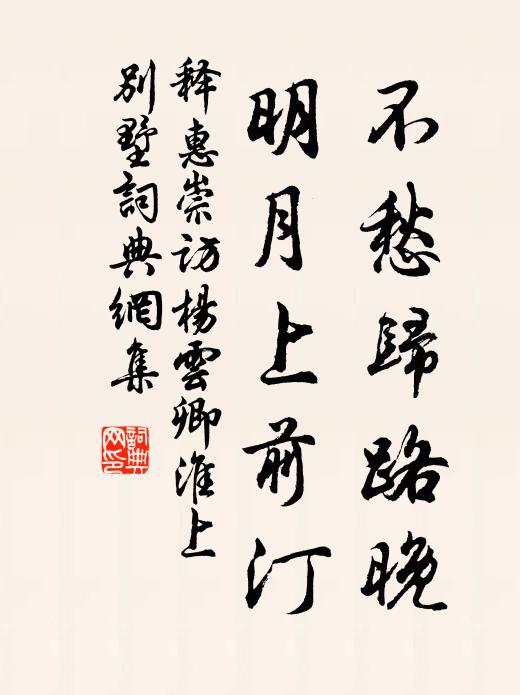 不愁歸路晚
明月上前汀
释惠崇訪楊雲卿淮上
别墅詞典網集
詞典网印